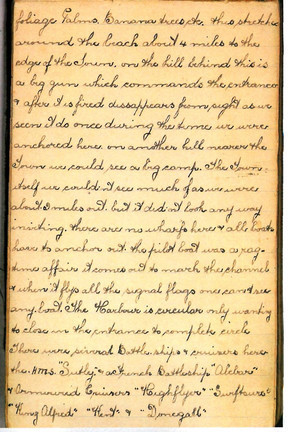 foliage Palms, Banana trees etc. this stretched
around the beach about 4 miles to the
edge of the Town, on the hill behind this is
a big gun which commands the entrance
& after its fired dissappears from sight as we
seen it do once during the time we were
anchored here on another hill nearer the
Town we could see a big camp. The Town
itself we could'nt see much of as we were
about 3 miles out. but it did'nt look any way
inviting. there are no wharfs here & all boats
have to anchor out. the pilot boat was a rag-
time affair it comes out to mark the channel
& when it flys all the signal flags one cant see
any boat. The Harbour is circular only wanting
to close in the entrance to complete circle
There were several Battle ships & cruisers here
the H.M.S. "Sutly," a French Battleship "Alcbar"
& Armoured Cruisers "Highflyer" "Swiftsure"
"King Alfred" "Kent" & "Donegall"